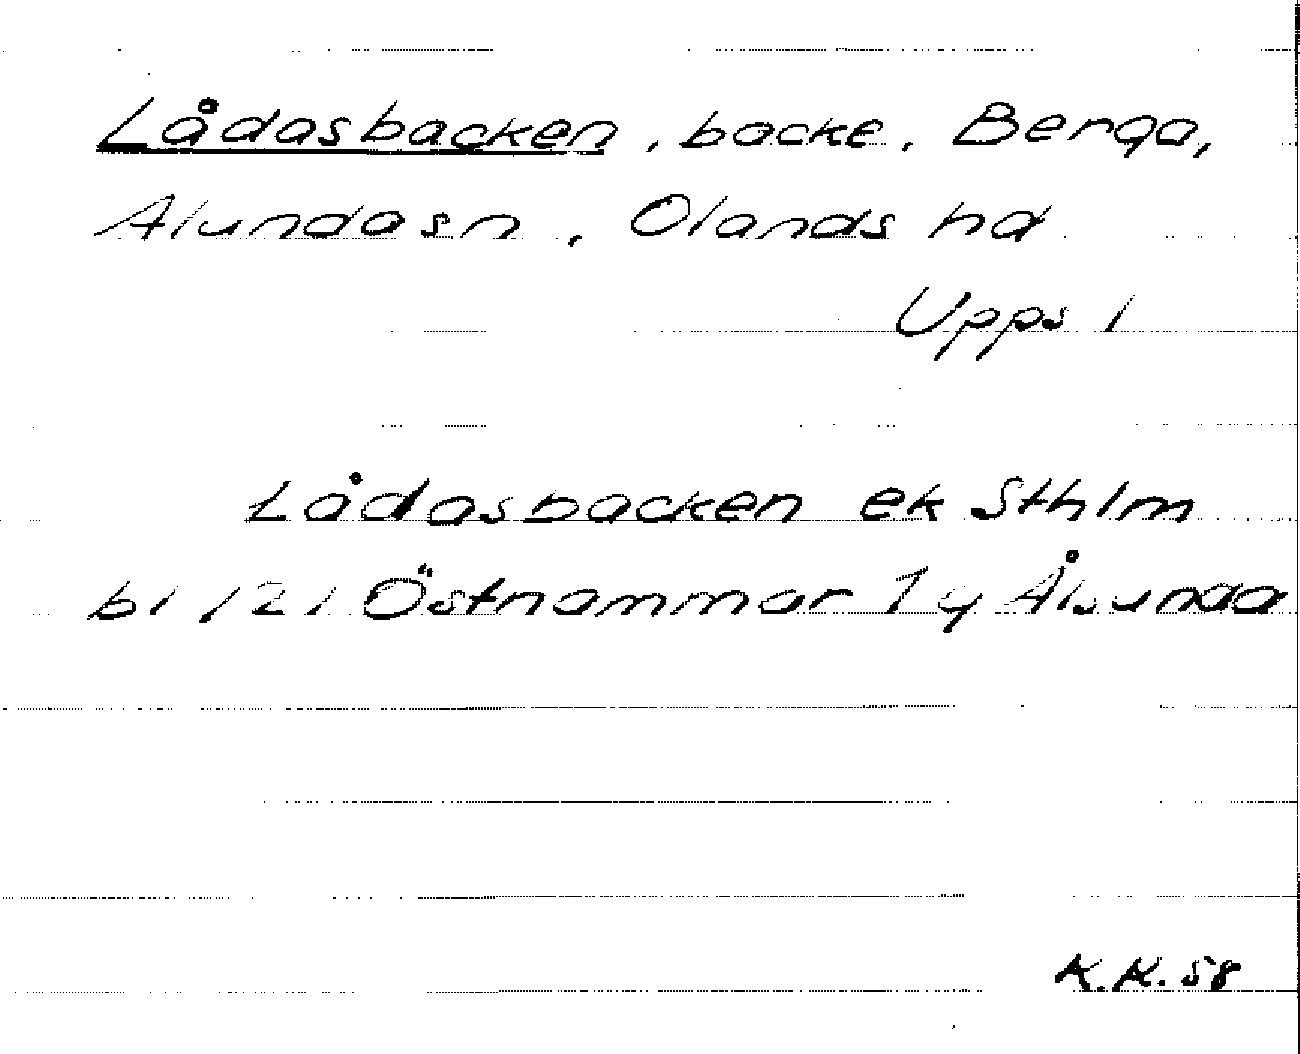 Lådasbacken, backe, Berga,
Alunda sn, Olands hd
Upps l
Lådasbacken ek Sthlm
bl 121 Östhammar 1 y
K.K. 58